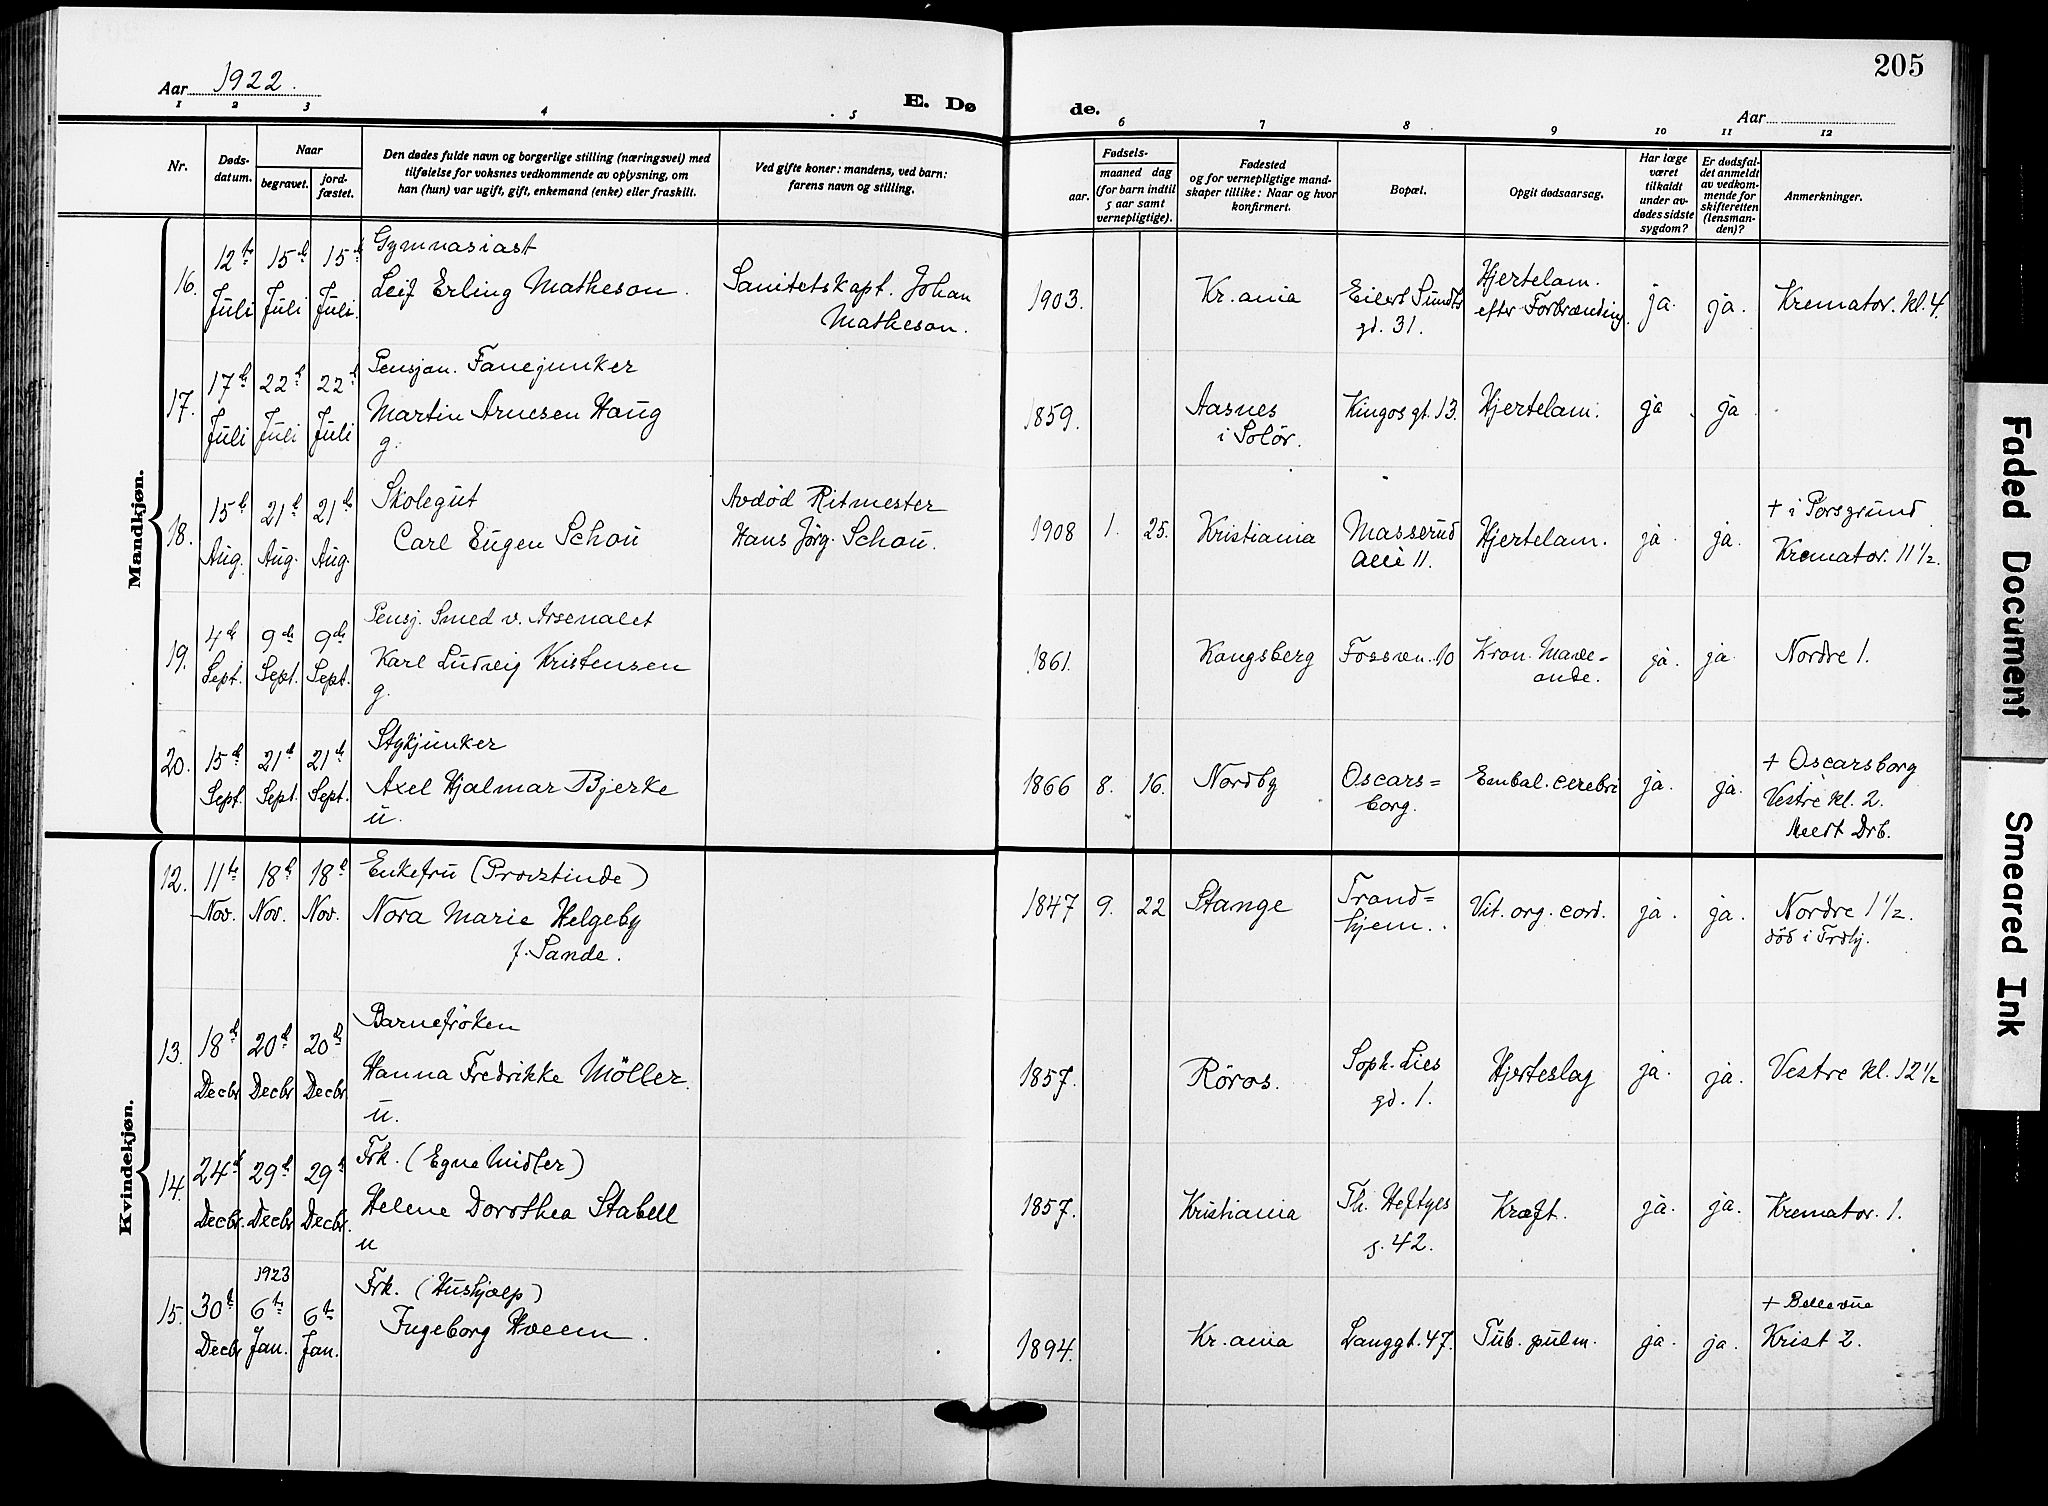 205
Aar 1922.
E. Dø
de.
Aar
1 2 3 4 5 6 7 8 9 10 11 12
Nr.
Døds-
datum.
Naar
begravet.
jord-
fæstet.
Den dødes fulde navn og borgerlige stilling (næringsvei) med
tilføielse for voksnes vedkommende av oplysning, om
han (hun) var ugift, gift, enkemand (enke) eller fraskilt.
Ved gifte koner: mandens, ved barn:
farens navn og stilling.
Fødsels-
aar.
maaned dag
(for barn indtil
5 aar samt
vernepligtige).
Fødested
og for vernepligtige mand-
skaper tillike: Naar og hvor
konfirmert.
Bopæl.
Opgit dødsaarsag.
Har læge
været
tilkaldt
under av-
dødes sidste
sygdom?
Er dødsfal-
det anmeldt
av vedkom-
mende for
skifteretten
(lensman-
den)?
Anmerkninger.
Mandkjøn.
16.
12te Juli
15de Juli
15de Juli
Gymnasiast
Leif Erling Matheson.
Sanitetskapt. Johan
Matheson.
1903.
Kr.ania
Eilert Sundts
gd. 31.
Hjertelam.
efter Forbrænding.
ja.
ja.
Kremator. kl. 4.
17.
17de Juli
22de Juli
22de Juli
Pensjon. Fanejunker
Martin Arnesen Haug
g.
1859.
Aasnes
i Solör.
Kingos gt. 13.
Hjertelam.
ja
ja
18.
15de Aug.
21de Aug.
21de Aug.
Skolegut
Carl Eugen Schou
Avdød Ritmester
Hans Jørg. Schou.
1908 1. 25.
Kristiania
Masserud
alle 11.
Hjertelam.
ja
ja.
+ i Porsgrund
Kremator. 11 1/2.
19.
4de Sept.
9de Sept.
9de Sept.
Pensj. Smed v. Arsenalet
Karl Ludvig Kristensen
g.
1861.
Kongsberg
Fossvn. 10
Kron. Mave=
onde.
ja.
ja
Nordre 1.
20.
15de Sept.
21de Sept.
21de Sept.
Stykjunker
Axel Hjalmar Bjerke
u.
1866 8. 16.
Nordby
Oscars=
borg.
Embal. cerebri
ja.
ja.
+ Oscarsborg
Vestre kl. 2.
Meldt Drb.
Kvindekjøn.
12.
11te Nov.
18de Nov.
18de Nov.
Enkefru (Provstinde)
Nora Marie Helgeby
f. Sande.
1847 9. 22
Stange
Trond=
hjem.
Vit. org. cord.
ja.
ja.
Nordre 1 1/2.
död i Trdhj.
13.
18de Decbr
20de Decbr
20de Decbr
Barnefröken
Hanna Fredrikke Möller.
u.
1857.
Röros.
Soph. Lies
gd. 1.
Hjerteslag
ja.
ja.
Vestre kl. 12 1/2
14.
24de Decbr.
29de Decbr
29de Decbr.
Frk. (Egne Midler)
Helene Dorothea Stabell
u
1857.
Kristiania
Th. Heftyes
g. 42.
Kræft.
ja.
ja.
Kremator. 1.
15.
30te Decbr
1923
6te Jan.
6te Jan.
Frk. (Hushjælp)
Ingeborg Hveem.
1894.
Kr.ania
Langgt. 47.
Tub. pulm.
ja.
ja.
+ Bellevue
Krist 2.
Faded Document
Smeared Ink